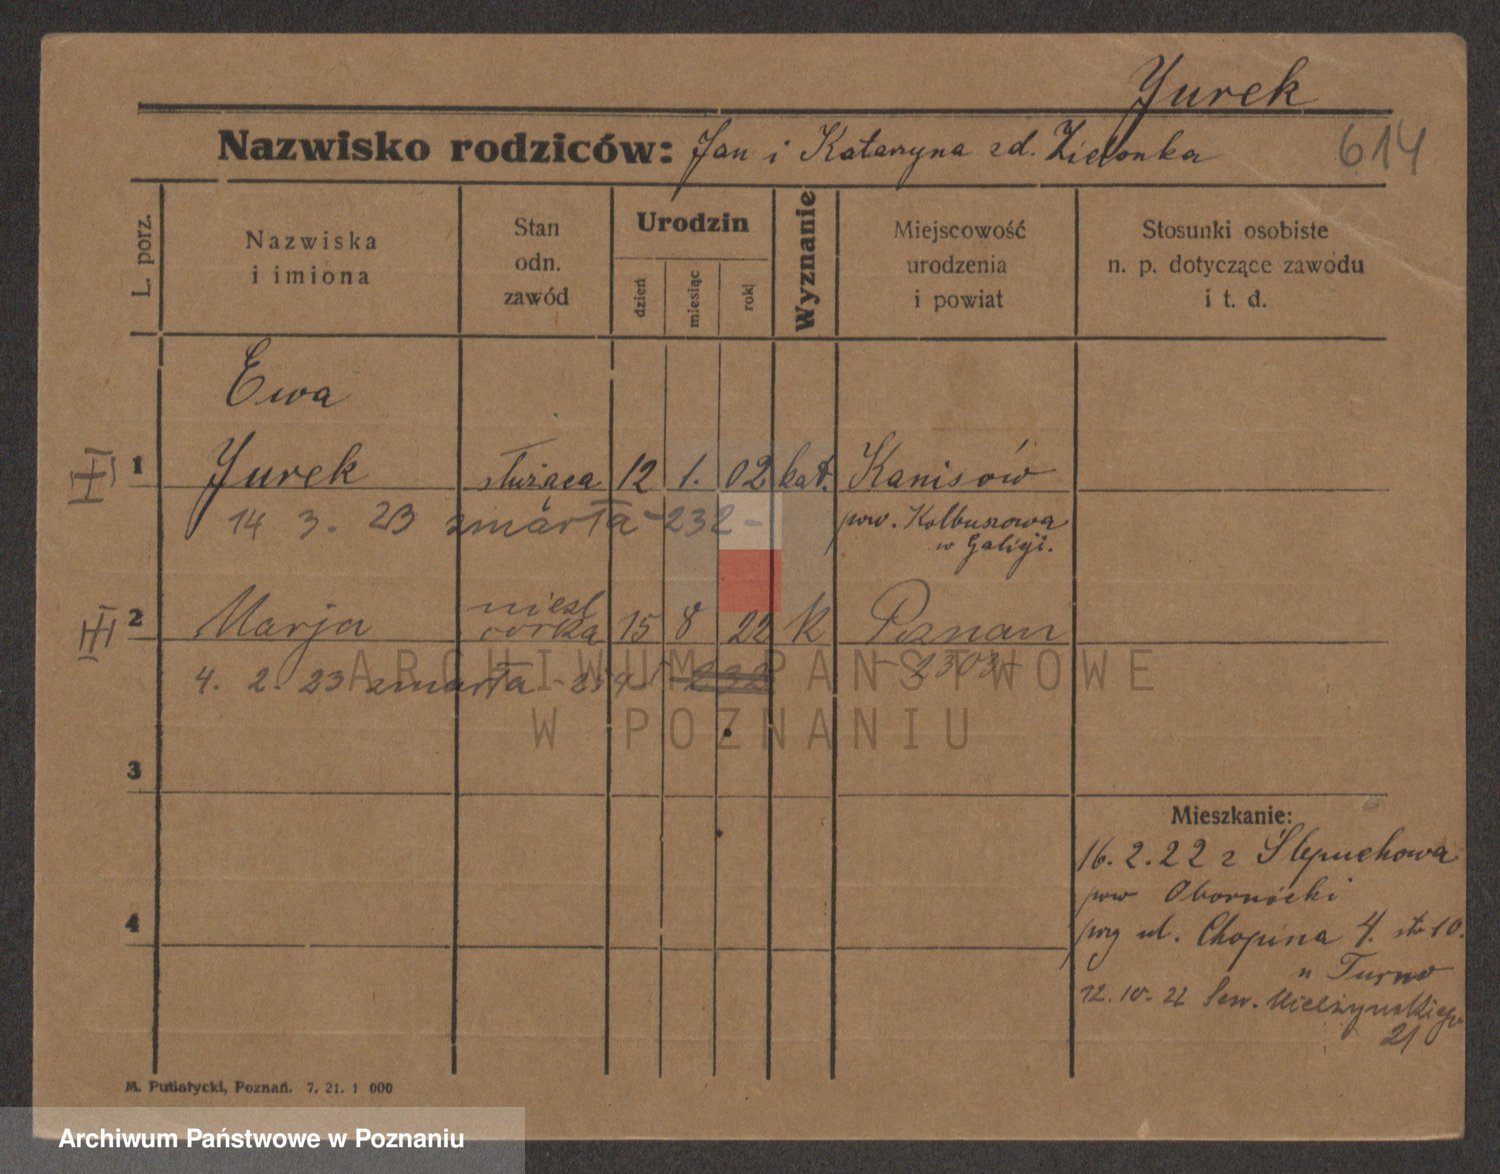 Jurek
Nazwisko rodziców: Jan i Katarzyna zd. Zielonka
614
L. porz.
Nazwiska
i imiona
Stan
odn.
zawód
Urodzin
dzień
miesiąc
rok
Wyznanie
Miejscowość
urodzenia
i powiat
Stosunki osobiste
n. p. dotyczące zawodu
i t. d.
Ewa
1 Jurek służąca 12 1. 02 kat. Kanisów
pow. Kolbuszowa
w Galicji.
14 3. 23 zmarła - 232 -
III 2 Marja nieśl córka 15 8 22 k Poznan
4. 2. 23 zmarła 232
3
4
Mieszkanie:
16. 2. 22 z Slepuchowa
pow Obornicki
przy ul. Chopina 4. st 10.
u Turno
12. 10. 22 Sew. Mielżynskiego
21
M. Putiatycki, Poznań. 7. 21. 1 000
ARCHIWUM PAŃSTWOWE
W POZNANIU
Archiwum Państwowe w Poznaniu